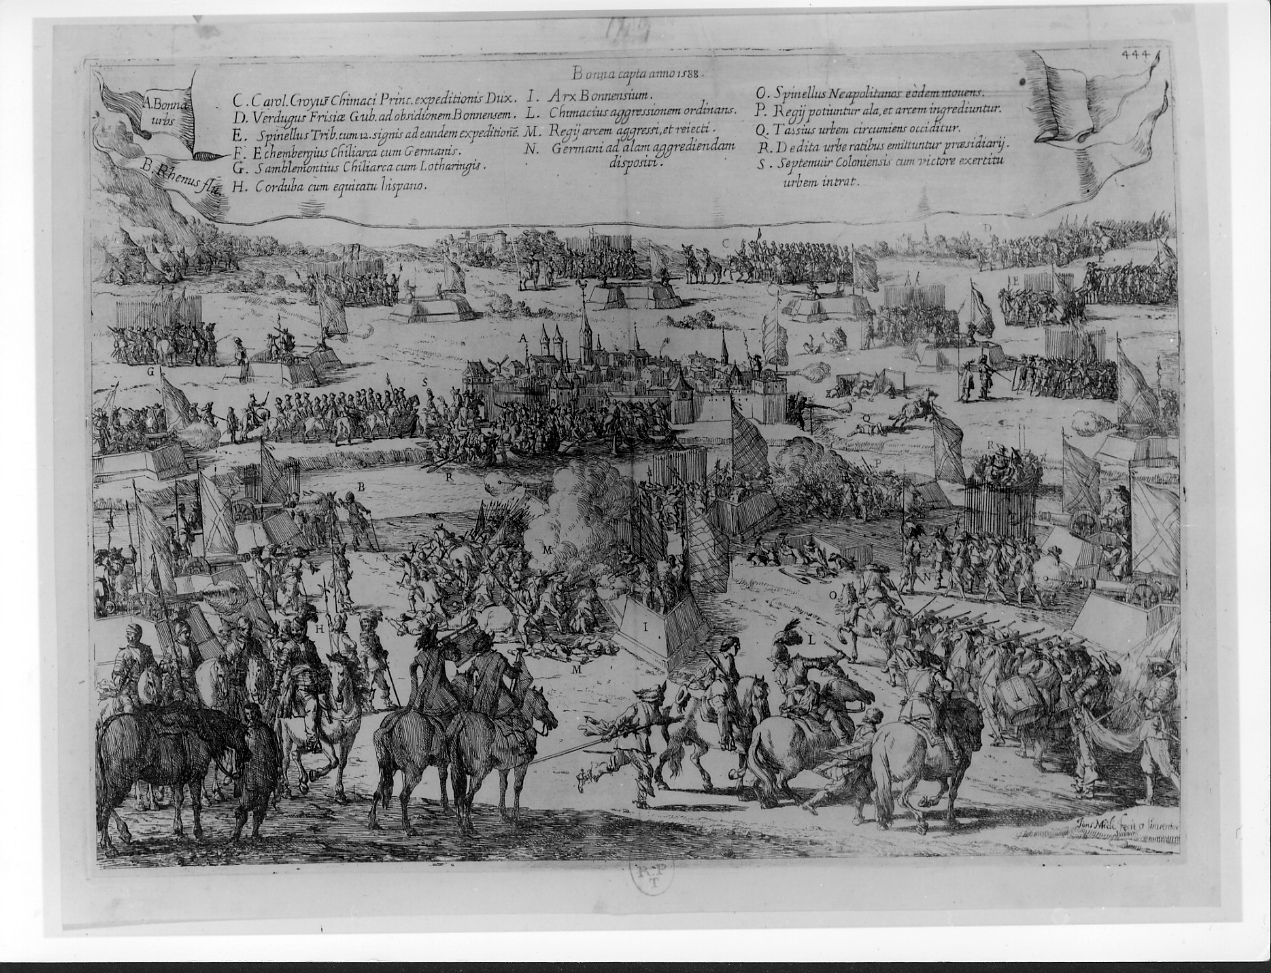 444
Bonna capta anno 1588.
A. Bonna
urbs
B. Rhenus flu
C. Carol. Croyus Chimaci Princ. expeditionis Dux.
D. Verdugus Frisiæ Gub. ad obsidionem Bonnensem.
E. Spinellus Trib. cum 12. signis ad eandem expeditionē.
F. Echembergius Chiliarca cum Germanis.
G. Samblemontius Chiliarca cum Lotharingis.
H. Corduba cum equitatu hispano.
I. Arx Bonnensium.
L. Chimacius aggressionem ordinans.
M. Regij arcem aggressi, et reiecti.
N. Germani ad alam aggrediendam
dispositi.
O. Spinellus Neapolitanos eòdem mouens.
P. Regij potiuntur ala, et arcem ingrediuntur.
Q. Tassius urbem circumiens occiditur.
R. Dedita urbe ratibus emittuntur præsidiarij.
S. Septemuir Coloniensis cum victore exercitu
urbem intrat.
C
D
E
A
G
S
R
B
R
M
N
O
H
I
L
M
R.P
T